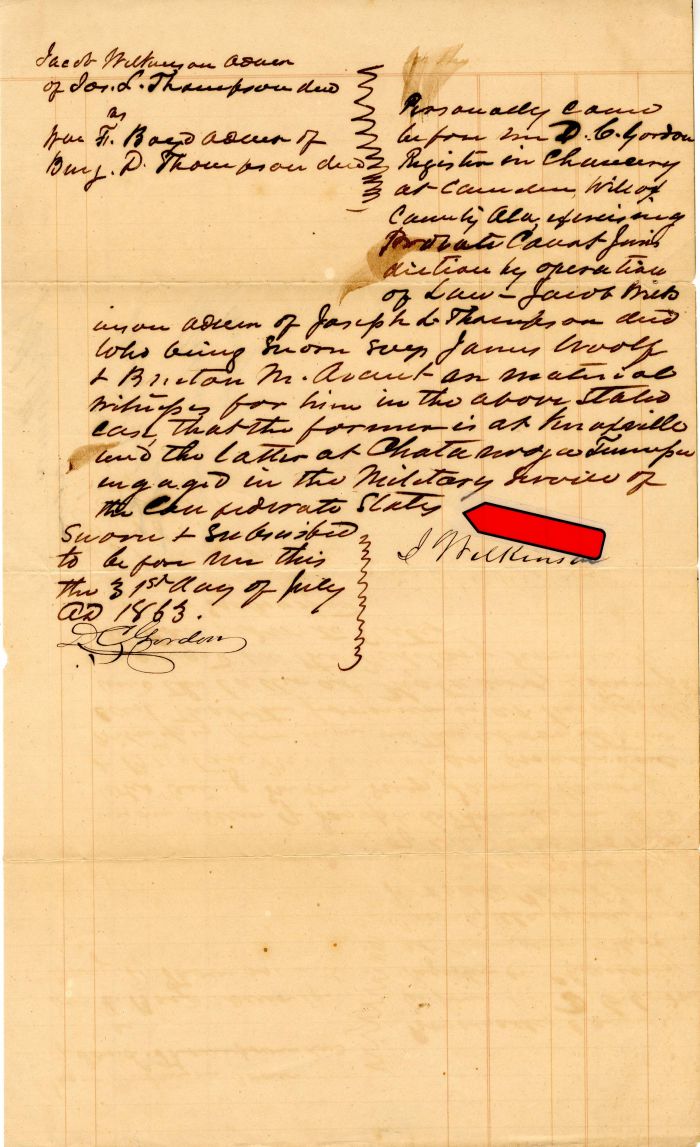 Jacob Wilkinson admr
of Jos. L. Thompson decd
vs
Wm F. Boyd admr of
Benj. D. Thompson decd
Personally came
before me D. C. Gordon
Register in Chancery
at Camden, Wilcox
County Ala, exercising
Probate Court Juris
diction by operation
of Law – Jacob Wilk
inson admr of Joseph L Thompson decd
Who being Sworn Says James Woolf
& Bruton M. Avant are material
Witnesses for him in the above stated
case, that the former is at Knoxville
and the latter at Chatanooga Tennessee
engaged in the Military Service of
the Confederate States
J Wilkinson
Sworn & Subscribed
to before me this
the 31st day of July
AD 1863.
D C Gordon